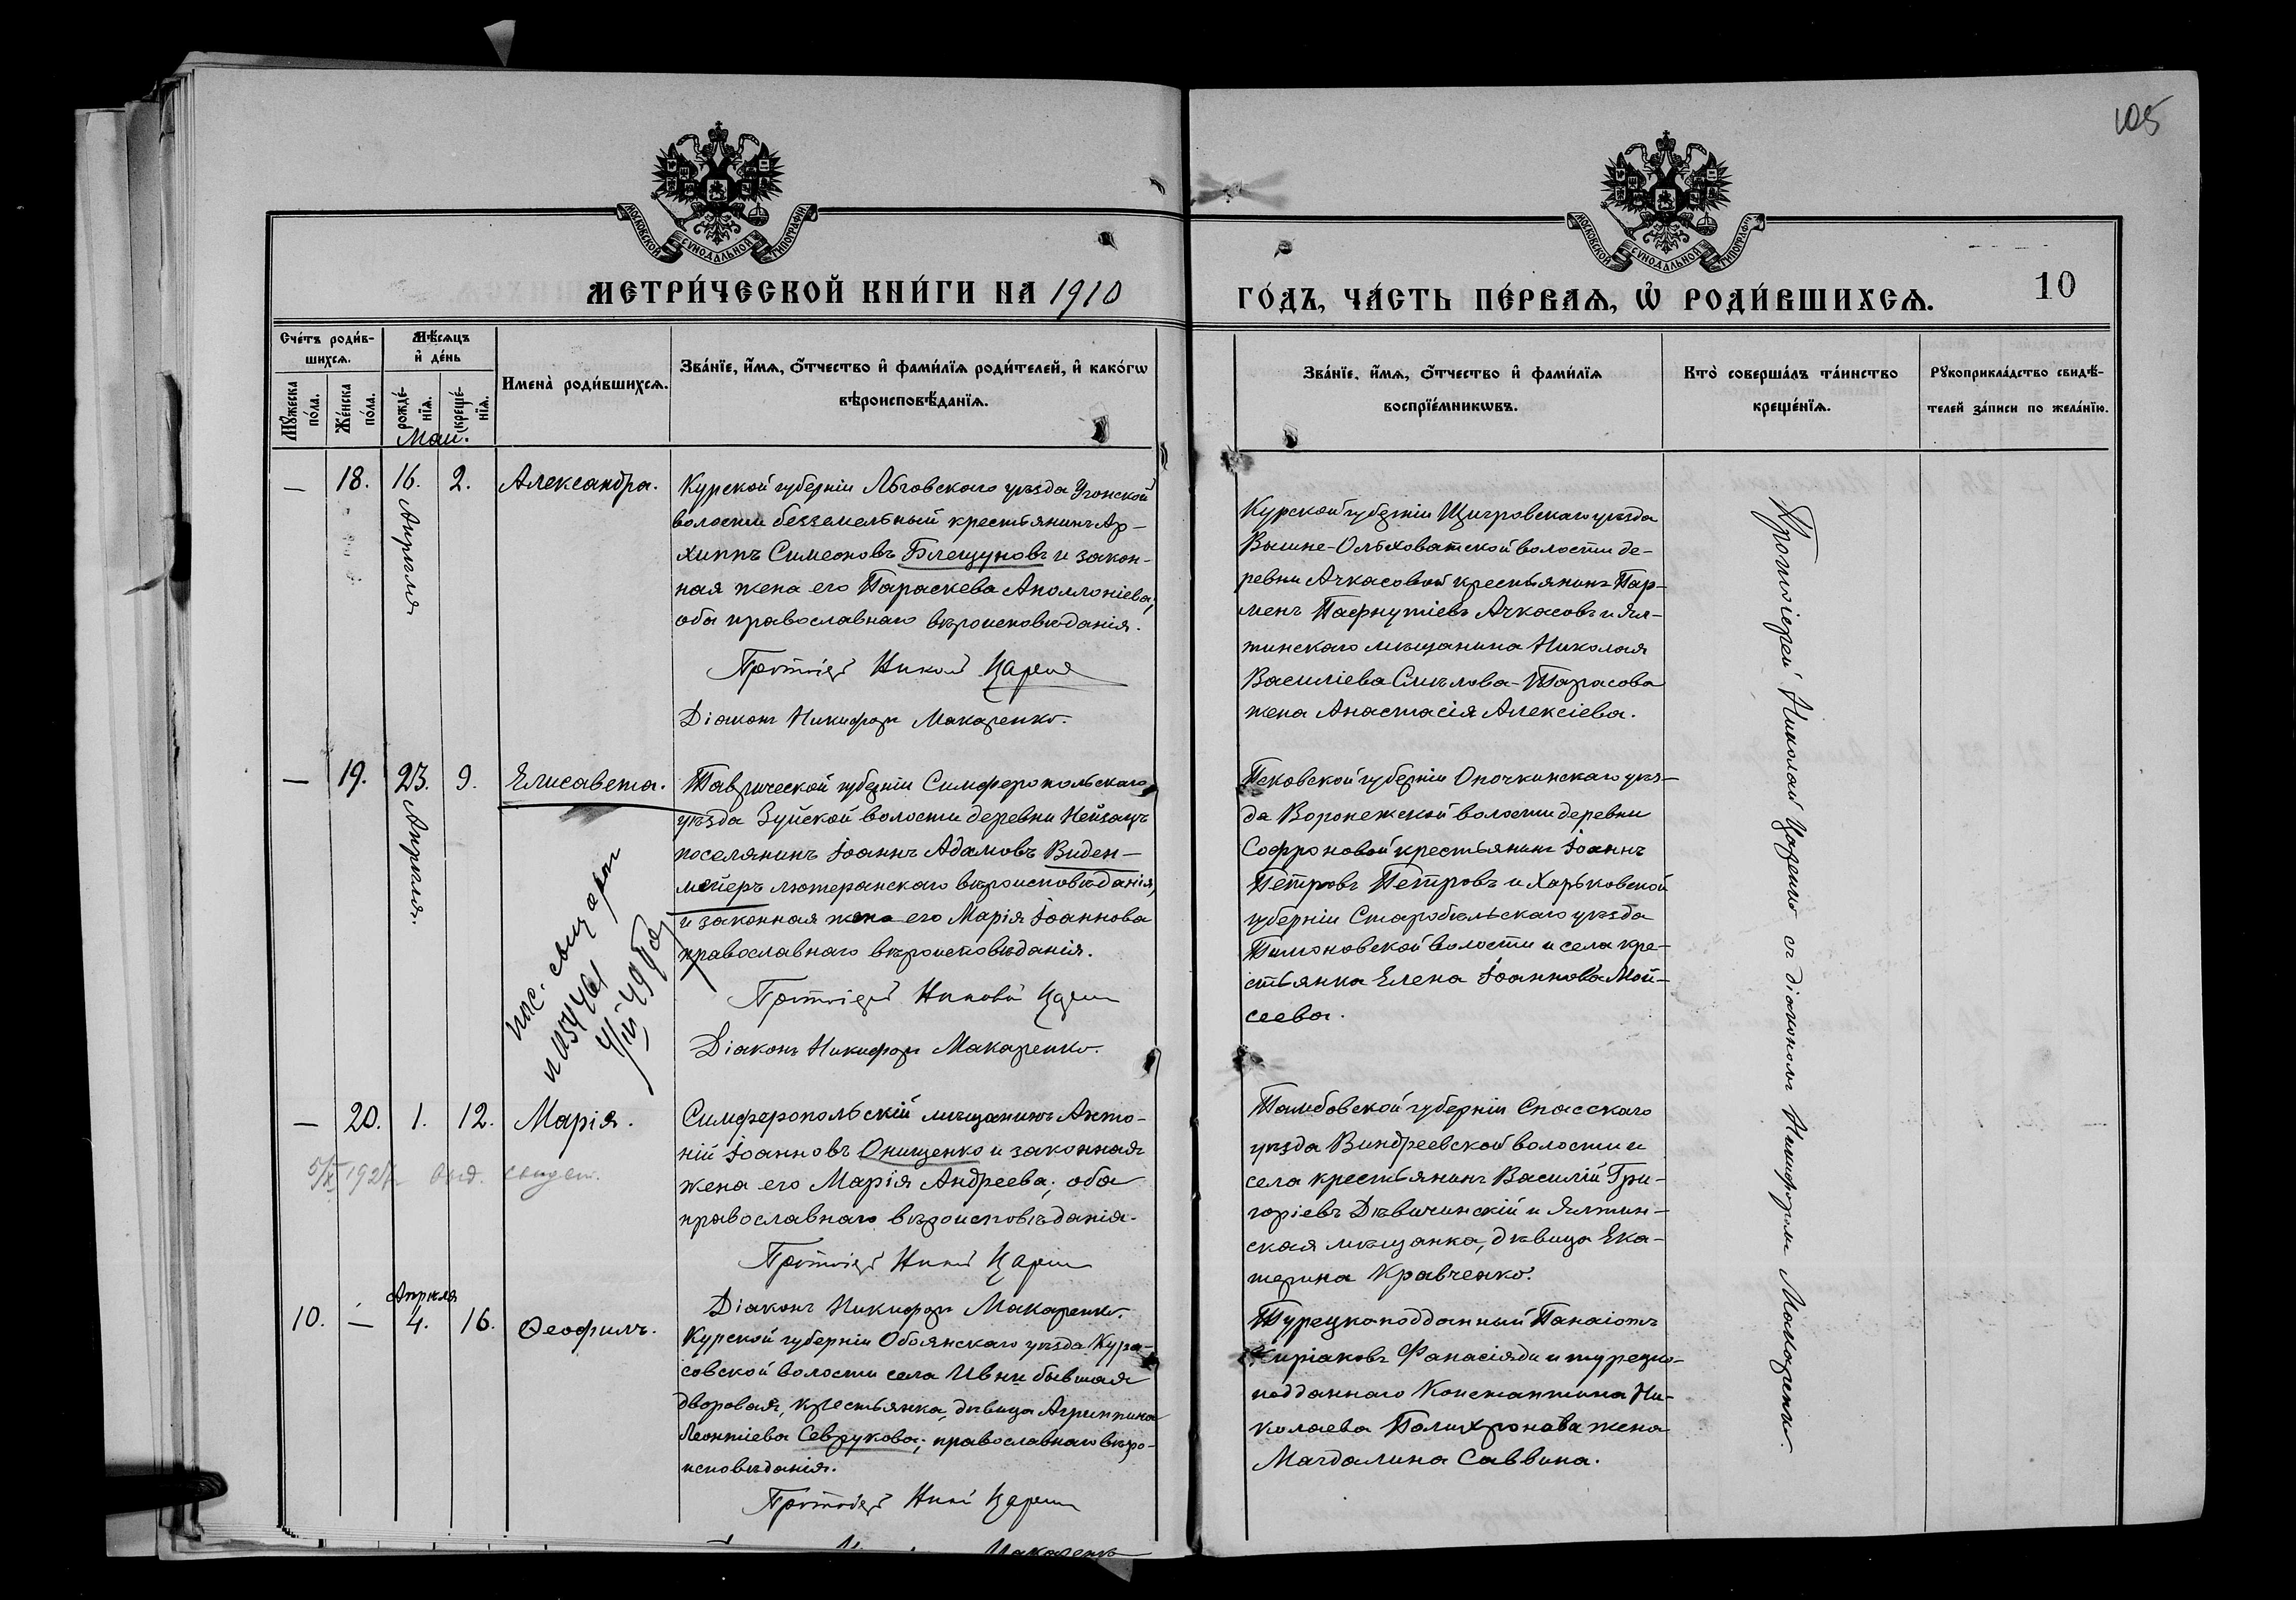 105
МОСКОВСКОЙ СѴНОДАЛЬНОЙ ТИПОГРАФІИ
МОСКОВСКОЙ СѴНОДАЛЬНОЙ ТИПОГРАФІИ
МЕТРИ́ЧЕСКОЙ КНИ́ГИ НА 1910
ГО́ДЪ, ЧА́СТЬ ПЕ́РВАѦ, Ѡ РОДИ́ВШИХСѦ.
10
Сче́тъ роди́в-
шихсѧ.
Мꙋ́жеска
по́ла.
Же́нска
по́ла.
Мѣ́сѧцъ
и҆ де́нь
рожде́-
нїѧ.
креще́-
нїѧ.
Имена̀ роди́вшихсѧ.
Зва́нїе, и҆́мѧ, ѻ҆́тчество и҆ фами́лїѧ роди́телей, и҆ како́гѡ
вѣроисповѣ́данїѧ.
Зва́нїе, и҆́мѧ, ѻ҆́тчество и҆ фами́лїѧ
воспрїе́мникѡвъ.
Кто̀ соверша́лъ та́инство
креще́нїѧ.
Рꙋкоприкла́дство свидѣ́-
телей за́писи по жела́нїю.
Маи.
— 18. 16. 2. Александра.
Апрѣля
Курской губерніи Льговскаго уѣзда Угонской
волости безземельный крестьянинъ Ар-
хиппъ Симеоновъ Блещуновъ и закон-
ная жена его Параскева Аполлоніева,
оба православнаго вѣроисповѣданія.
Протоіерей Николай Царенко
Діаконъ Никифоръ Макаренко.
Курской губерніи Щигровскаго уѣзда
Вышне-Ольховатской волости де-
ревни Ачкасовой крестьянинъ Пар-
менъ Пафнутіевъ Ачкасовъ и Ял-
тинскаго мѣщанина Николая
Василіева Смѣлова-Тарасова
жена Анастасія Алексіева.
Протоіерей Николай Царенко съ діакономъ Никифоромъ Макаренко.
— 19. 23. 9. Елисавета.
Апрѣля.
Таврической губерніи Симферопольскаго
уѣзда Зуйской волости деревни Нейзацъ
поселянинъ Іоаннъ Адамовъ Виден-
мейеръ лютеранскаго вѣроисповѣданія,
и законная жена его Марія Іоаннова
православнаго вѣроисповѣданія.
Протоіерей Николай Царенко
Діаконъ Никифоръ Макаренко.
Псковской губерніи Опочкинскаго уѣз-
да Воронежской волости деревни
Софроновой крестьянинъ Іоаннъ
Петровъ Петровъ и Харьковской
губерніи Старобѣльскаго уѣзда
Тимоновской волости и села кре-
стьянка Елена Іоаннова Мой-
сеева.
— 20. 1. 12. Марія.
Симферопольскій мѣщанинъ Анто-
ній Іоанновъ Онищенко и законная
жена его Марія Андреева, оба
православнаго вѣроисповѣданія.
Протоіерей Николай Царенко
Діаконъ Никифоръ Макаренко.
Тамбовской губерніи Спасскаго
уѣзда Виндреевской волости и
села крестьянинъ Василій Гри-
горіевъ Дѣвичинскій и Ялтин-
ская мѣщанка, дѣвица Ека-
терина Кравченко.
10. — 4. 16. Ѳеофилъ.
Апрѣля
Курской губерніи Обоянскаго уѣзда Кура-
совской волости села Ивни бывшая
дворовая, крестьянка, дѣвица Агриппина
Леонтіева Севрукова, православнаго вѣро-
исповѣданія.
Протоіерей Николай Царенко
Макаренко
Турецкоподданный Панаіотъ
Киріаковъ Фанасіяди и турецко-
подданнаго Константина Ни-
колаева Полихронова жена
Магдалина Саввина.